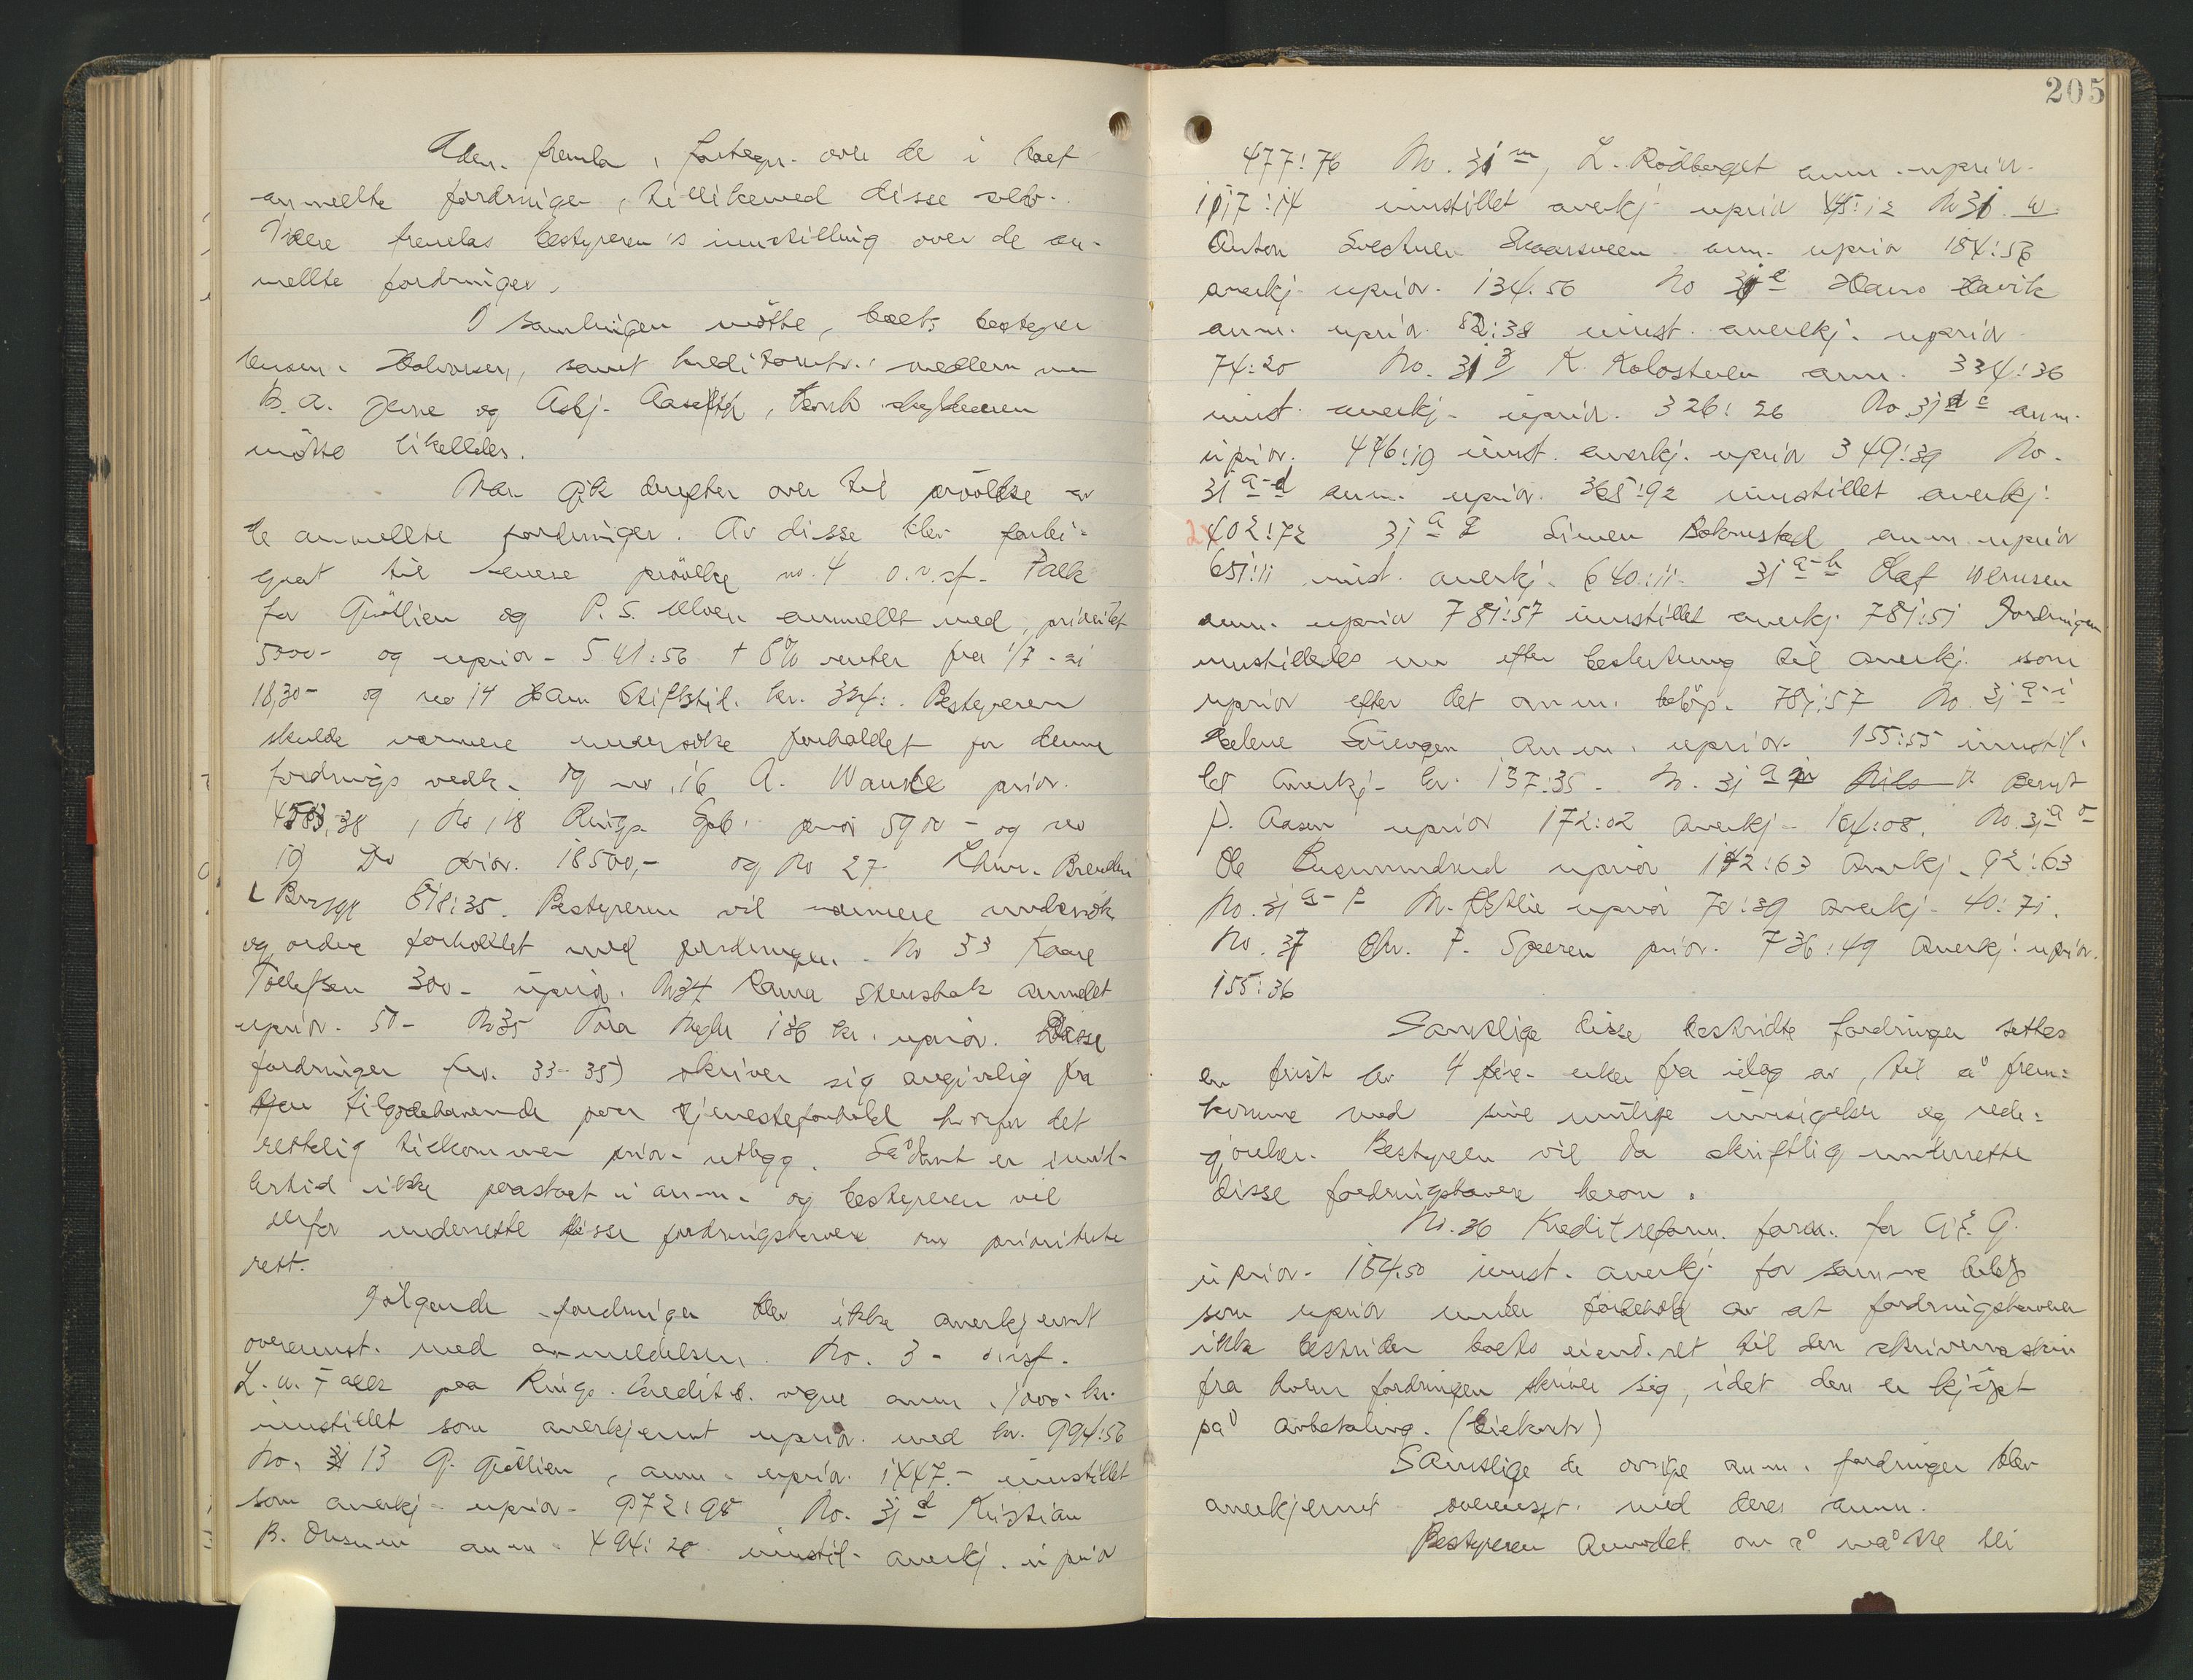 Adm. fremla, fortegn. over de i boet
anmeldte fordringer, tillikemed disse selv.
Videre fremlas bestyreren's innstilling over de an-
mellte fordringer.
I samlingen møtte, boets bestyrer
Halvorsen, samt kreditorutv. medlemmer
B. A. og Asbj. Aasefth,
møtte likelledes.
Man gik derefter over til prövelse av
de anmellte fordringer. Av disse blev forbi-
gaat til senere prövelse no. 4 o.r.sf. Falk
for Gröttlien og P. S. anmellt med, prioritet
5000- og uprior- 541:56 + 6% renter fra 1/7 - 21
18,30- og no 14 Ham Stiftstid. kr. 324:. Bestyreren
skulde nærmere undersöke forholdet for denne
fordrings vedk. og no. 16 A. prior.
4583,38, No, 18 Rings. Spb. prior 5900- og no
19 Do prior. 18500,- og No 27 Laur. Brenden
L Brygge 618:35. Bestyreren vil nærmere undersök
og ordne forholdet med fordringen. No 33 Kaare
Tollefsen 300- uprior. N34 Stensbak anmeldt
uprior. 50- No35 Tora 186 kr. uprior. Disse
fordringer (no. 33-35) skriver sig angivelig fra
tilgodehavende paa tjenesteforhold hvorfor det
rettelig tilkommer prior- utlegg. Sådant er imid-
lertid ikke paastaat i anm. og bestyreren vil
derfor underrette disse fordringshavere om prioritets
rett.
Fölgende fordringer blev ikke anerkjennt
overensst. med anmeldelsen. No. 3- orsf.
L. u. Falk paa Rings. Kreditb. vegne anm. 1000- kr.
innstillet som anerkjennt uprior. med kr. 994:56
No. 13 G. Gröttlien, anm. uprior. 1447.- innstillet
som anerkj- uprior- 972:98 No. 31 d Kristian
B. anm. 494:20 innstil- anerkj. uprior
205
477:76 No. 31 m, L. Rödberget anm. uprior.
1117:14 innstillet anerkj- uprior 45:12 No31 w
Anton anm. uprior 184:56
anerkj- uprior. 134.56 No 31 e Hans Havik
anm. uprior. 82:38 innst. anerkj. uprior
74:20 No. 31 z K. Kolostuen anm. 334:36
innst. anerkj- uprior. 326:26 No 31 c anm.
uprior. 446:19 innst. anerkj. uprior 349:39 No.
31 a-d anm. uprior. 365:92 innstillet anerkj:
2402:72 31 a g Simen anm uprior
651:11 innst. anerkj. 640:11. 31 a-h Olaf
anm. uprior 781:57 innstillet anerkj. 781:51 Fordringen
innstilledes nu efter beslutning til anerkj. som
uprior efter det anm. belöp. 781:57 No. 31 a-i
Helene anm. uprior- 155:55 innstil-
let anerkj- kr. 137:35. N. 31 a Bernt
P. Aasen uprior 172:02 anerkj- 164:08. No. 31 a o
Ole uprior 142:63 anerkj. 92:63
No. 31 a-p M. uprior 70:89 anerkj- 40:71.
No. 37 Chr. F. prior. 736:49 anerkj: uprior.
155:36
Samtlige disse bestridte fordringer settes
en frist av 4 fire- uker fra idag av, til å frem-
komme med sine mulige innsigelser og rede-
gjörelser. Bestyreren vil da skriftlig underrette
disse fordringshavere herom.
No. 36 Kreditreform. foren. for
uprior- 184.50 innst. anerkj for samme belöp
som uprior under forbehold av at fordringshaveren
ikke bestrider boets eiend.ret til den skrivemaskin
fra hvem fordringen skriver sig, idet den er kjöpt
på avbetaling. (Leiekontr)
Samtlige de övrige anm. fordringer blev
anerkjennt overensst. med deres anm.
Bestyreren anmodet om å måtte bli